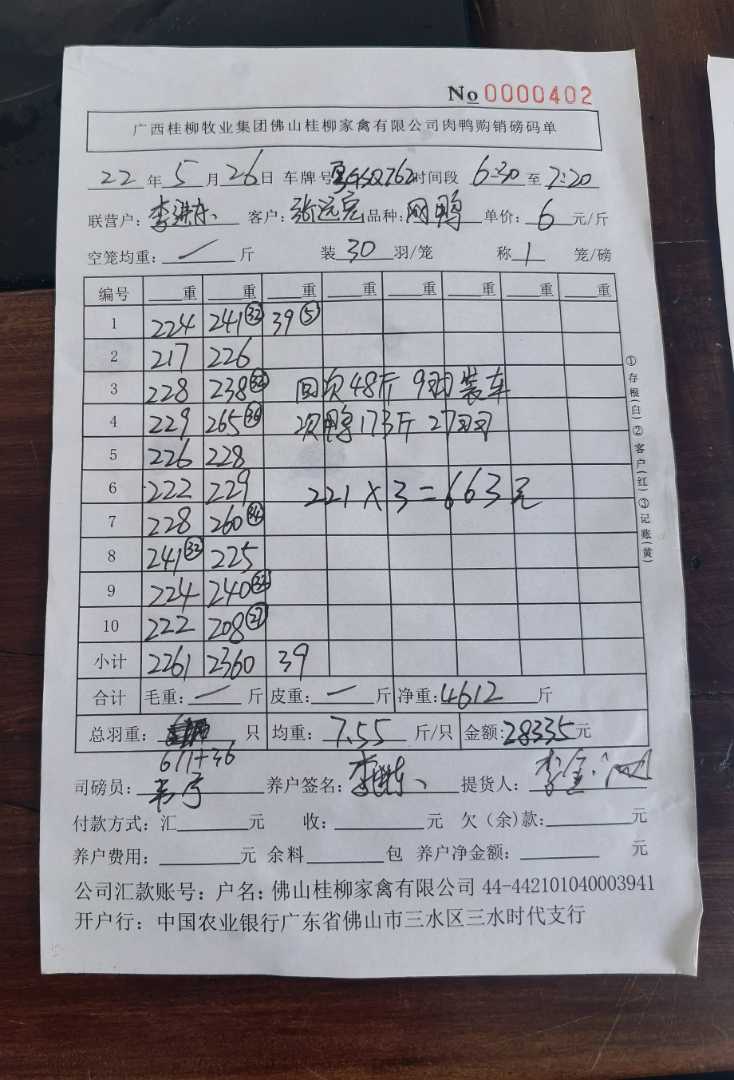 No 0000402
广西桂柳牧业集团佛山桂柳家禽有限公司肉鸭购销磅码单
22 年 5 月 26 日 车牌号 Q762 时间段 6:30 至 7:20
联营户: 李洪东 客户: 张远亮 品种: 网鸭 单价: 6 元/斤
空笼均重: 一 斤 装 30 羽/笼 称 1 笼/磅
编号 重 重 重 重 重 重 重 重
1 224 241 32 39 5
2 217 226
3 228 238 回次48斤 9只装车
4 229 265 次鸭173斤 27只
5 226 228
6 222 229 221×3=663元
7 228 260 34
8 241 32 225
9 224 240
10 222 208 27
小计 2261 2360 39
合计 毛重: 一 斤 皮重: 一 斤 净重: 4612 斤
总羽重: 只 均重: 7.55 斤/只 金额: 28335 元
611+36
司磅员: 养户签名: 提货人: 李
付款方式: 汇 元 收: 元 欠(余)款: 元
养户费用: 元 余料 包 养户净金额: 元
公司汇款账号: 户名: 佛山桂柳家禽有限公司 44-442101040003941
开户行: 中国农业银行广东省佛山市三水区三水时代支行
①存根(白)②客户(红)③记账(黄)